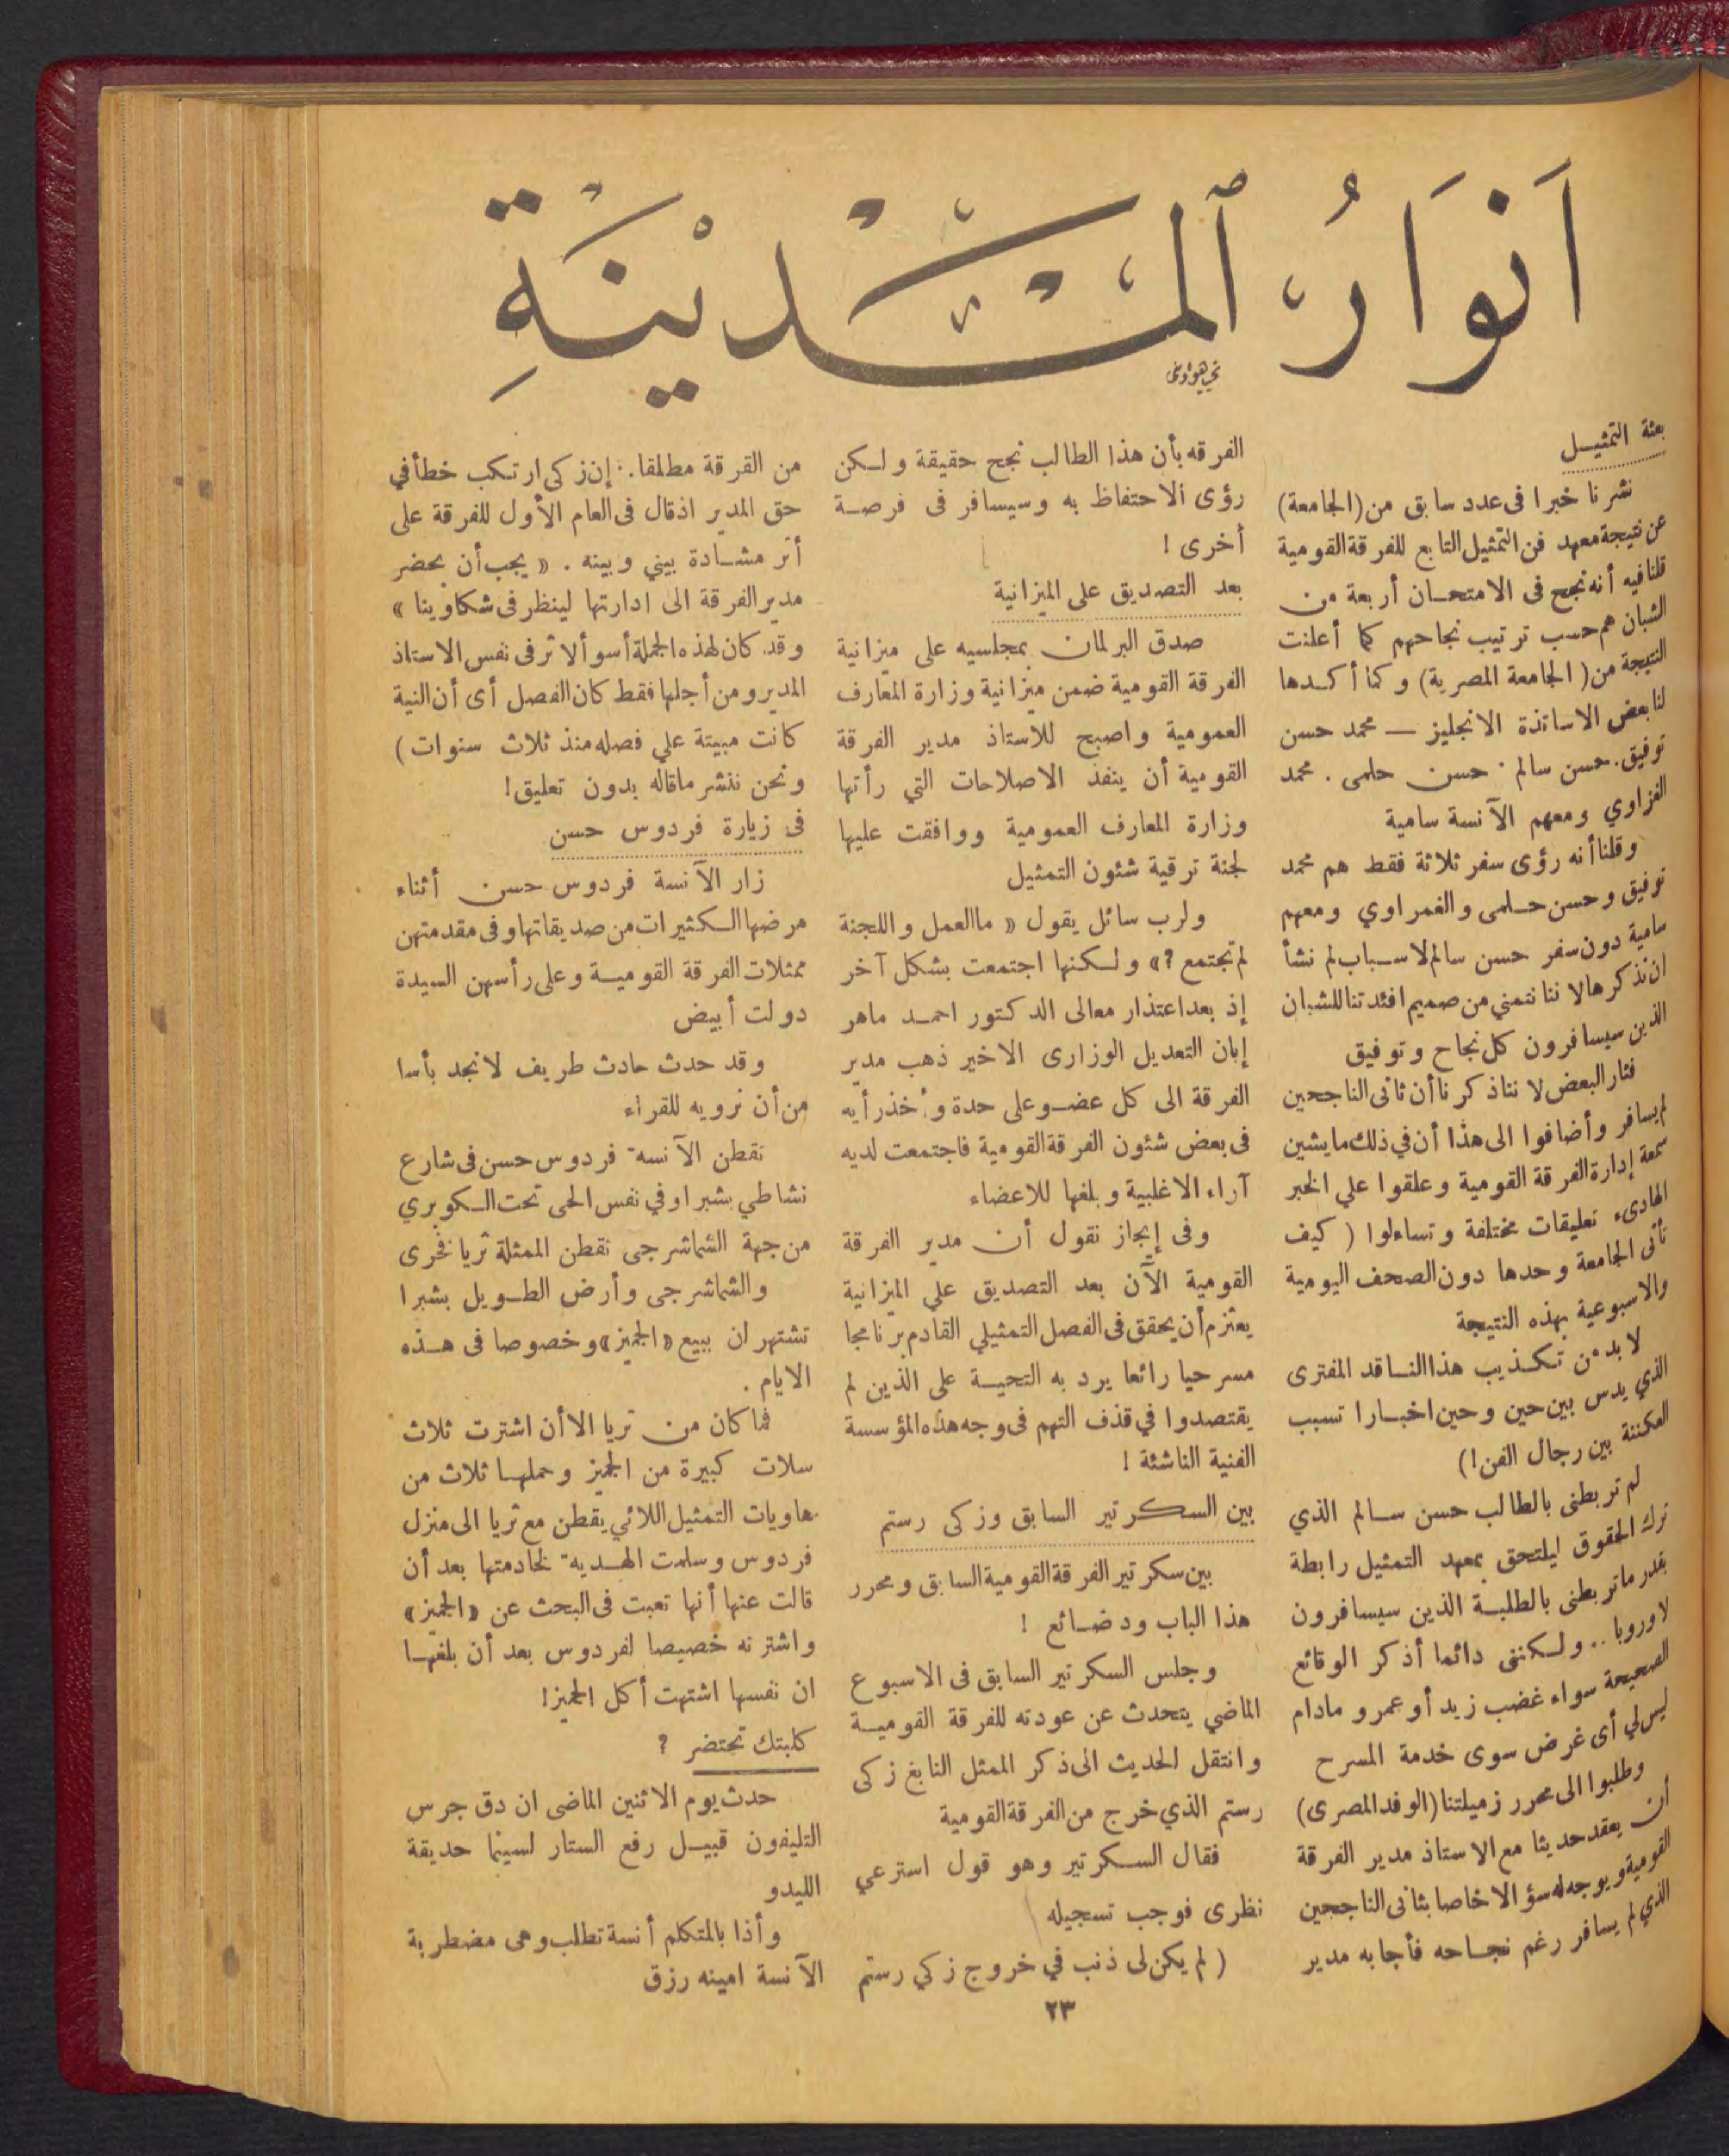 أَنوَارُ ٱلمَدْينَةِ
بعثة التمثيل
نشرنا خبرا فى عدد سابق من (الجامعة)
عن نتيجة معهد فن التمثيل التابع للفرقة القومية
قلنا فيه أنه نجح فى الامتحان أربعة من
الشبان هم حسب ترتيب نجاحهم كما أعلنت
النتيجة من ( الجامعة المصرية) وكما أكدها
لنا بعض الاساتذة الانجليز — محمد حسن
توفيق. حسن سالم . حسن حلمى . محمد
الغزاوي ومعهم الآنسة سامية
وقلنا أنه رؤى سفر ثلاثة فقط هم محمد
توفيق وحسن حلمى والغمراوي ومعهم
سامية دون سفر حسن سالم لاسباب لم نشأ
ان نذكرها لاننا نتمني من صميم افئدتنا للشبان
الذين سيسافرون كل نجاح وتوفيق
فثار البعض لاننا ذكرنا أن ثانى الناجحين
لم يسافر وأضافوا الى هذا أن في ذلك ما يشين
سمعة إدارة الفرقة القومية وعلقوا علي الخبر
الهادىء تعليقات مختلفة وتساءلوا ( كيف
تأتى الجامعة وحدها دون الصحف اليومية
والاسبوعية بهذه النتيجة
لا بد من تكذيب هذا الناقد المفترى
الذي يدس بين حين وحين اخبارا تسبب
العكننة بين رجال الفن !)
لم تربطنى بالطالب حسن سالم الذي
ترك الحقوق ليلتحق بمعهد التمثيل رابطة
بقدر ما تربطنى بالطلبة الذين سيسافرون
لاوروبا .. ولكننى دائما أذكر الوقائع
الصحيحة سواء غضب زيد أو عمرو مادام
ليس لي أى غرض سوى خدمة المسرح
وطلبوا الى محرر زميلتنا (الوفد المصرى)
أن يعقد حديثا مع الاستاذ مدير الفرقة
القومية ويوجه له سؤالا خاصا بثانى الناجحين
الذي لم يسافر رغم نجاحه فأجابه مدير
الفرقه بأن هذا الطالب نجح حقيقة ولكن
رؤى الاحتفاظ به وسيسافر فى فرصة
أخرى !
بعد التصديق على الميزانية
صدق البرلمان بمجلسيه على ميزانية
الفرقة القومية ضمن ميزانية وزارة المعارف
العمومية واصبح للاستاذ مدير الفرقة
القومية أن ينفذ الاصلاحات التي رأتها
وزارة المعارف العمومية ووافقت عليها
لجنة ترقية شئون التمثيل
ولرب سائل يقول « ما العمل واللجنة
لم تجتمع ؟» ولكنها اجتمعت بشكل آخر
إذ بعد اعتذار معالى الدكتور احمد ماهر
إبان التعديل الوزارى الاخير ذهب مدير
الفرقة الى كل عضو على حدة وأخذ رأيه
فى بعض شئون الفرقة القومية فاجتمعت لديه
آراء الاغلبية وبلغها للاعضاء
وفى إيجاز نقول أن مدير الفرقة
القومية الآن بعد التصديق علي الميزانية
يعتزم أن يحقق فى الفصل التمثيلي القادم برنامجا
مسرحيا رائعا يرد به التحية على الذين لم
يقتصدوا في قذف التهم فى وجه هذه المؤسسة
الفنية الناشئة !
بين السكرتير السابق وزكى رستم
بين سكرتير الفرقة القومية السابق ومحرر
هذا الباب ود ضائع !
وجلس السكرتير السابق فى الاسبوع
الماضي يتحدث عن عودته للفرقة القومية
وانتقل الحديث الى ذكر الممثل النابغ زكى
رستم الذي خرج من الفرقة القومية
فقال السكرتير وهو قول استرعي
نظرى فوجب تسجيله
( لم يكن لى ذنب في خروج زكي رستم
من القرقة مطلقا. إن زكى ارتكب خطأ في
حق المدير اذ قال فى العام الأول للفرقة على
أثر مشادة بيني وبينه . « يجب أن يحضر
مدير الفرقة الى ادارتها لينظر فى شكاوينا »
وقد كان لهذه الجملة أسوأ لاثر فى نفس الاستاذ
المدير ومن أجلها فقط كان الفصل أى أن النية
كانت مبيتة علي فصله منذ ثلاث سنوات )
ونحن ننشر ماقاله بدون تعليق !
فى زيارة فردوس حسن
زار الآنسة فردوس حسن أثناء
مرضها الكثيرات من صديقاتها وفى مقدمتهن
ممثلات الفرقة القومية وعلى رأسهن السيدة
دولت أبيض
وقد حدث حادث طريف لانجد بأسا
من أن نرويه للقراء
تقطن الآنسة فردوس حسن فى شارع
نشاطي بشبرا وفي نفس الحى تحت الكوبري
من جهة الشماشرجى تقطن الممثلة ثريا فخرى
والشماشرجى وأرض الطويل بشبرا
تشتهران ببيع «الجميز» وخصوصا فى هذه
الايام .
فما كان من ثريا الا أن اشترت ثلاث
سلات كبيرة من الجميز وحملها ثلاث من
هاويات التمثيل اللائي يقطن مع ثريا الى منزل
فردوس وسلمت الهدية لخادمتها بعد أن
قالت عنها أنها تعبت فى البحث عن «الجميز»
واشترته خصيصا لفردوس بعد أن بلغها
ان نفسها اشتهت أكل الجميز !
كلبتك تحتضر ؟
حدث يوم الاثنين الماضى ان دق جرس
التليفون قبيل رفع الستار لسينما حديقة
الليدو
وأذا بالمتكلم أنسة تطلب وهى مضطربة
الآنسة امينه رزق
٢٣